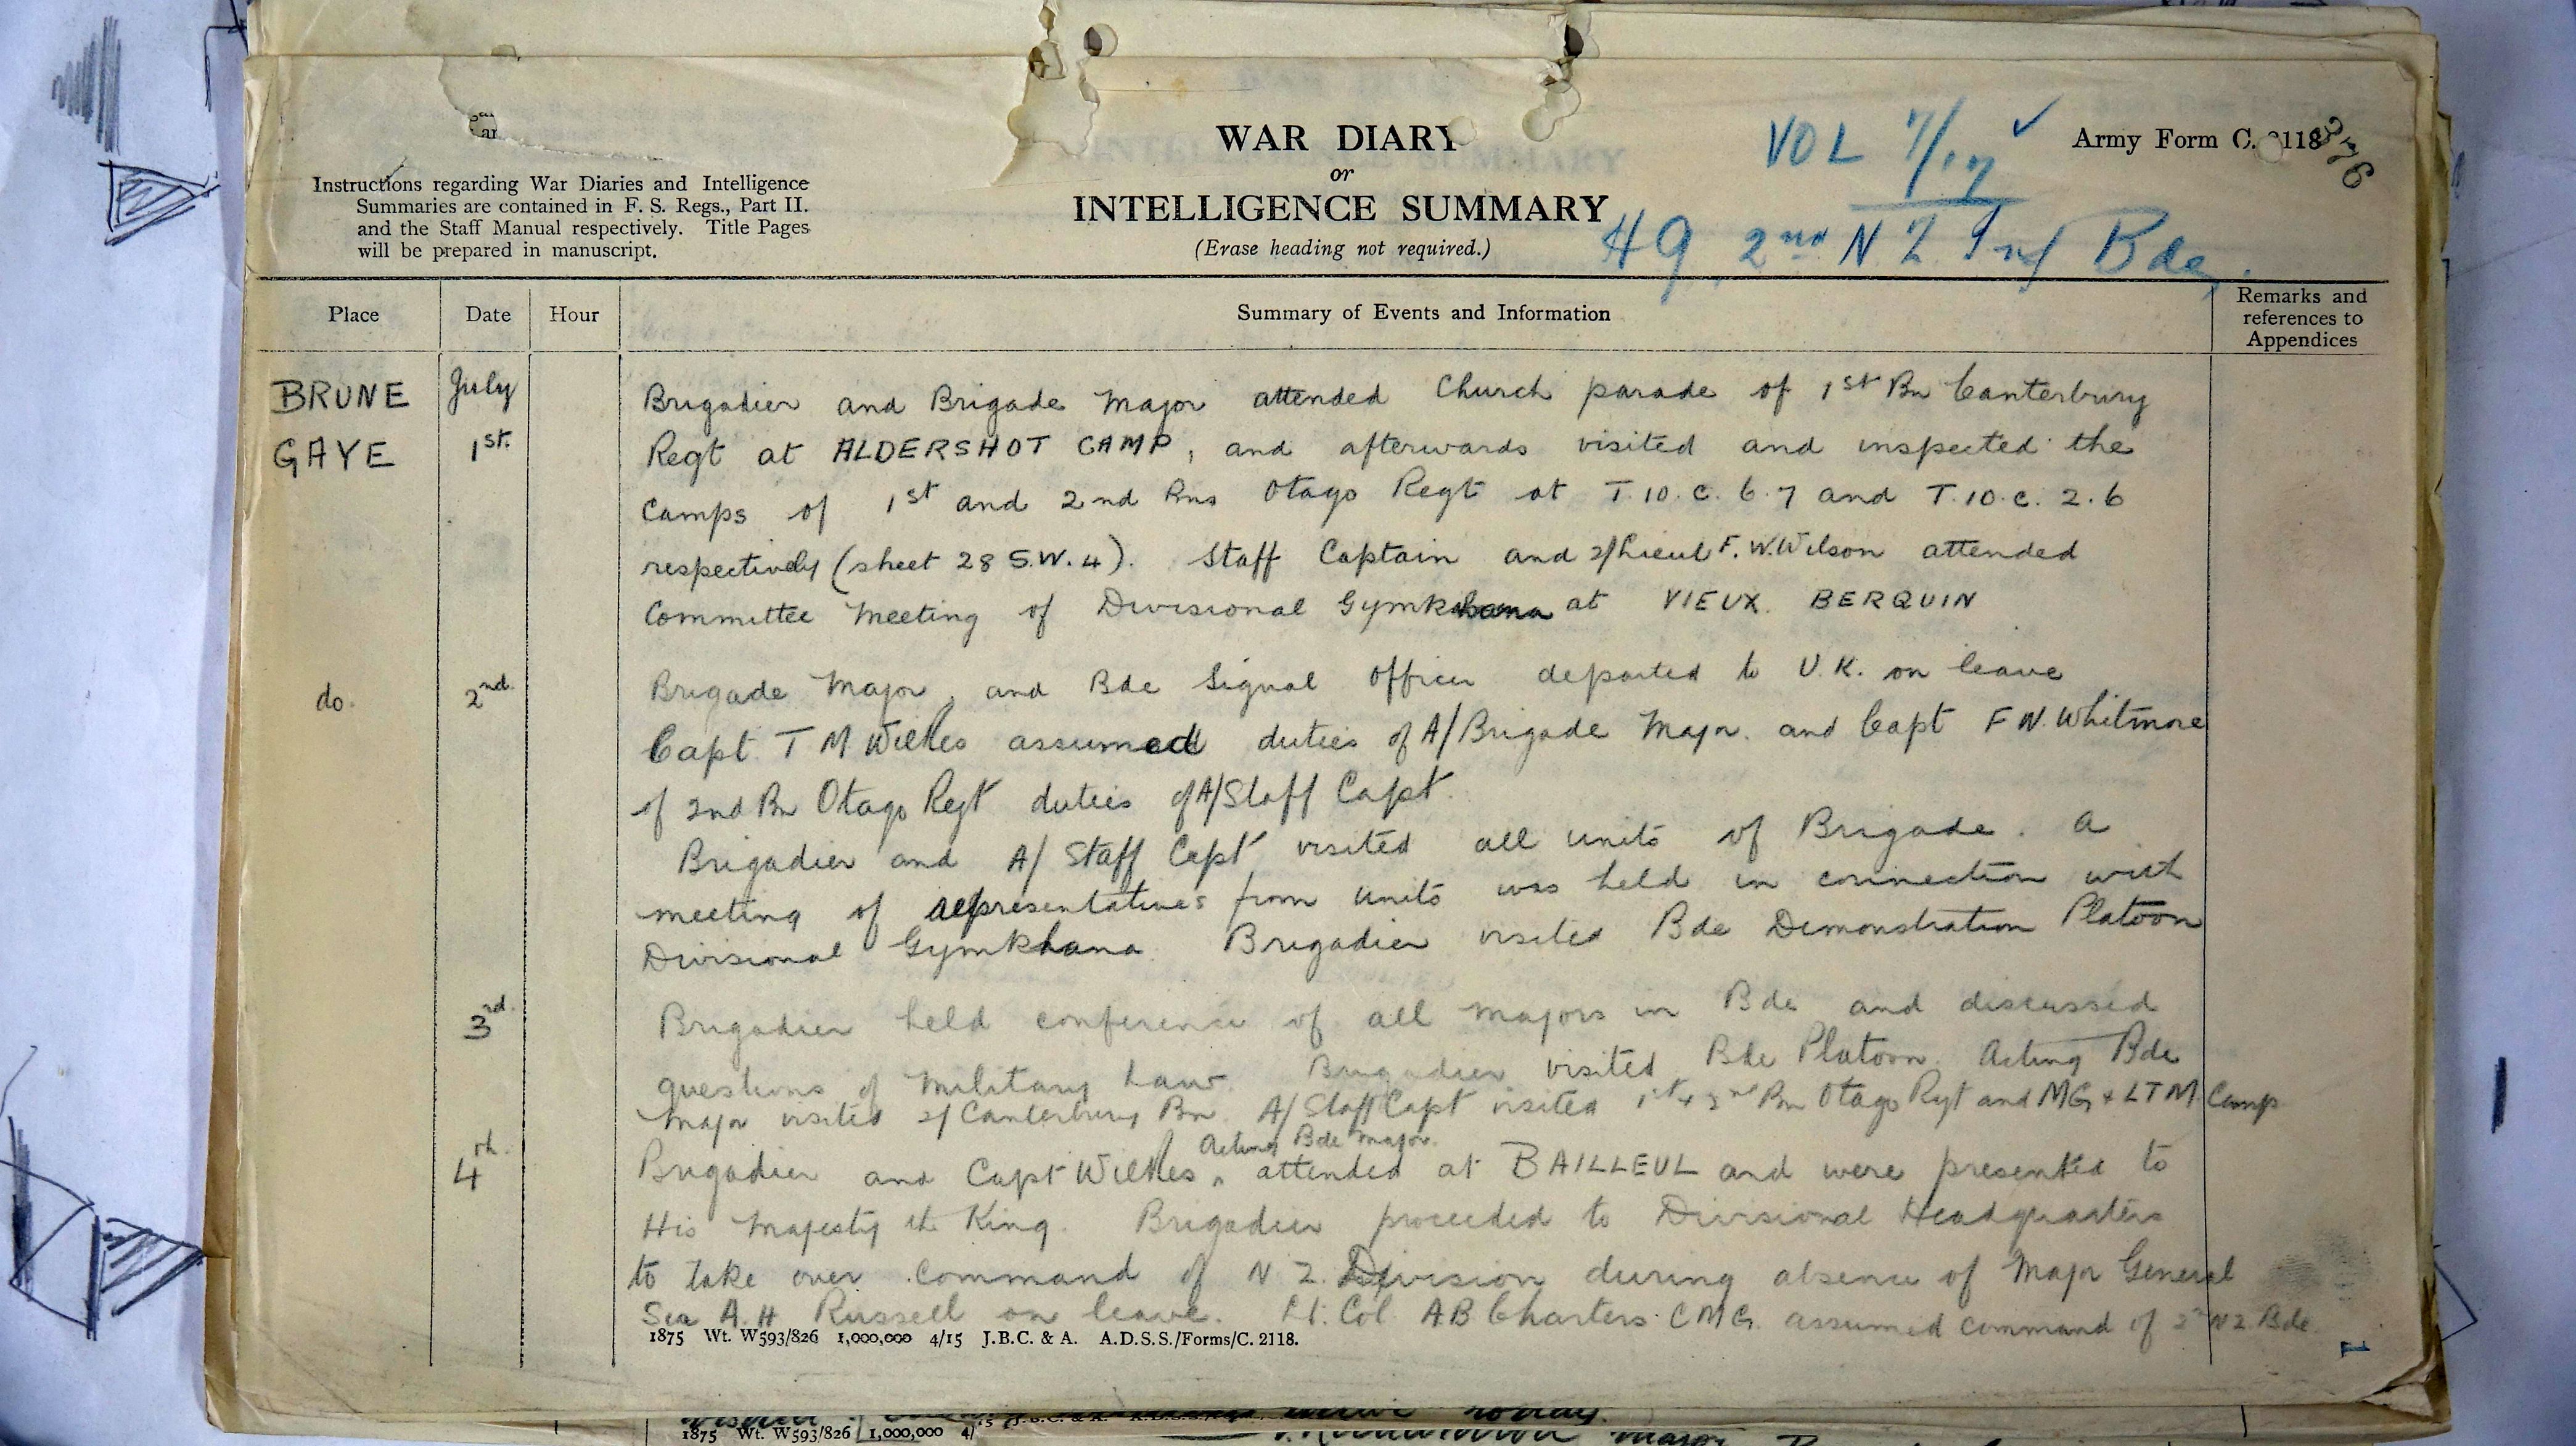 WAR DIARY
or
INTELLIGENCE SUMMARY
(Erase heading not required.)
Instructions regarding War Diaries and Intelligence
Summaries are contained in F. S. Regs., Part II.
and the Staff Manual respectively. Title Pages
will be prepared in manuscript.
VOL 7/17 ✓
HQ 2nd NZ Inf Bde.
Army Form C. 2118
376
Place Date Hour Summary of Events and Information Remarks and references to Appendices
BRUNE July Brigadier and Brigade Major attended Church parade of 1st Bn Canterbury
GAYE 1st. Regt at ALDERSHOT CAMP, and afterwards visited and inspected the
Camps of 1st and 2nd Bns Otago Regt at T.10.c.6.7 and T.10.c.2.6
respectively (sheet 28 S.W.4). Staff Captain and 2/Lieut F.W.Wilson attended
Committee Meeting of Divisional Gymkhana at VIEUX BERQUIN
do. 2nd. Brigade Major, and Bde Signal Officer departed to U.K. on leave
Capt T M Wilkes assumed duties of A/Brigade Major. and Capt F N. Whitmore
of 2nd Bn Otago Regt duties of A/Staff Capt.
Brigadier and A/ Staff Capt visited all units of Brigade. A
meeting of representatives from units was held in connection with
Divisional Gymkhana. Brigadier visited Bde Demonstration Platoon
3rd. Brigadier held conference of all Majors in Bde and discussed
questions of Military Law. Brigadier visited Bde Platoon. Acting Bde
Major visited 2/Canterbury Bn. A/Staff Capt visited 1st & 2nd Bn Otago Regt and MG & LTM Camp
Acting Bde Major.
4th. Brigadier and Capt Wilkes ^ attended at BAILLEUL and were presented to
His Majesty the King. Brigadier proceeded to Divisional Headquarters
to take over command of N Z. Division during absence of Major General
Sir A.H Russell on leave. Lt. Col AB Charters CMG. assumed command of 2nd NZ. Bde.
1875 Wt. W593/826 1,000,000 4/15 J.B.C. & A. A.D.S.S./Forms/C. 2118.
1
1875 Wt. W593/826 1,000,000 4/